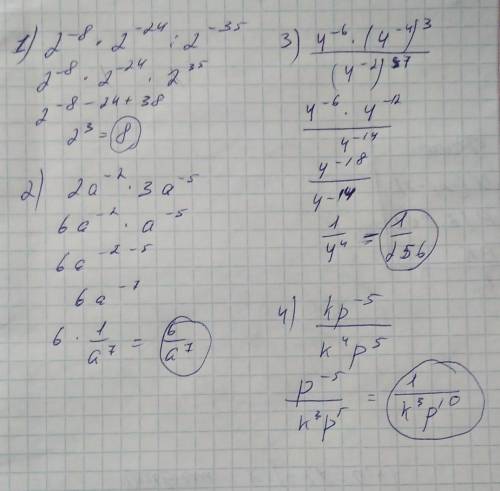 1) 2^-8 · 2^-24 : 2^-35
2^-8 · 2^-24 · 2^35
2^-8-24+38
2^3 = 8
2) 2a^-2 · 3a^-5
6a^-2 · a^-5
6a^-2-5
6a^-7
6 · 1/a^7 = 6/a^7
3) 4^-6 · (4^-4)^3 / (4^-2)^7
4^-6 · 4^-12 / 4^-14
4^-18 / 4^-14
1/4^4 = 1/256
4) kp^-5 / k^4p^5
p^-5 / k^3p^5 = 1 / k^3p^10